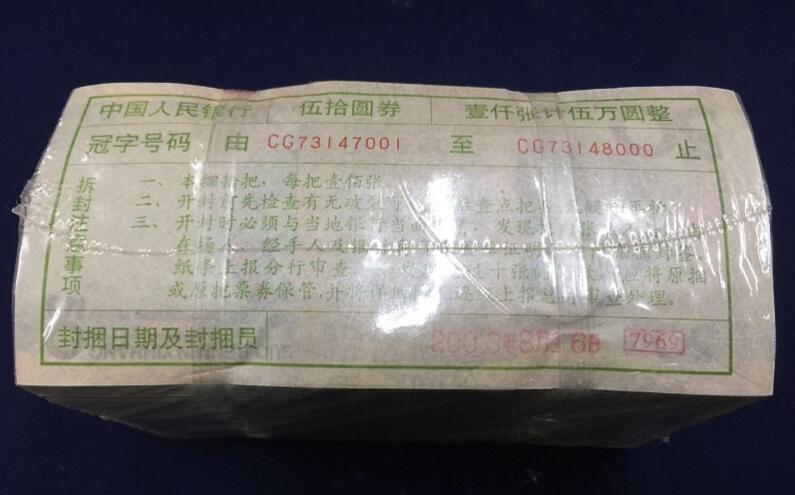 中国人民银行 伍拾圆券 壹仟张计伍万圆整
冠字号码 由 CG73147001 至 CG73148000 止
拆封注意事项
一、本捆拾把,每把壹佰张
二、开封前先检查有无破 查点把
三、开封时必须与当地银行当面 发现 张
在场人、经手人及银 证明
纸条上报分行审查 达十张 应将原捆
或原把票券保管,并将详 上报总 审查处理。
封捆日期及封捆员 8月 6日 7969